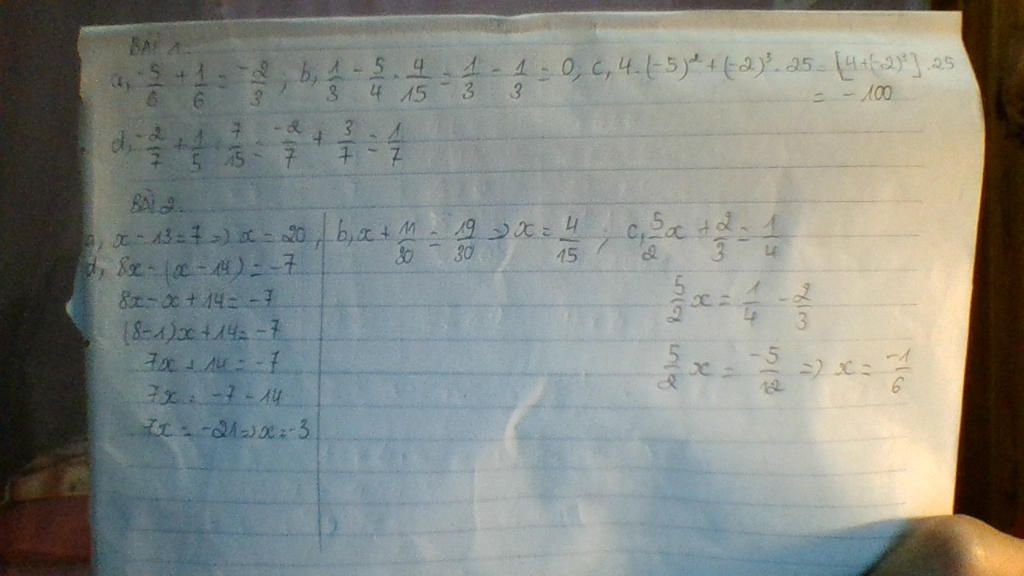 BÀI 1.
a, -5/6 + 1/6 = -2/3 ; b, 1/3 - 5/4 . 4/15 = 1/3 - 1/3 = 0, c, 4.(-5)² + (-2)³.25 = [4+(-2)³].25
= -100
d, -2/7 + 1/5 : 7/15 = -2/7 + 3/7 = 1/7
BÀI 2.
a, x - 13 = 7 => x = 20, b, x + 11/30 = 19/30 => x = 4/15 ; c, 5/2 x + 2/3 = 1/4
d, 8x - (x - 14) = -7
8x - x + 14 = -7
(8-1)x + 14 = -7
7x + 14 = -7
7x = -7 - 14
7x = -21 => x = -3
5/2 x = 1/4 - 2/3
5/2 x = -5/12 => x = -1/6